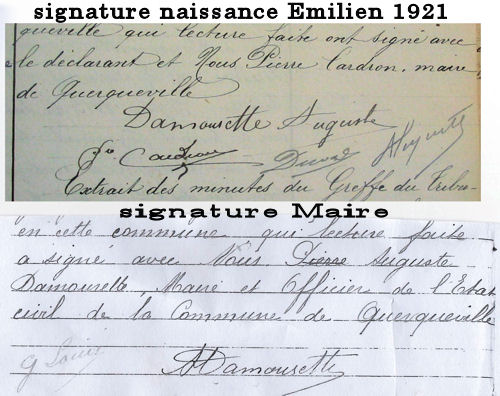 signature naissance Emilien 1921
queville qui lecture faite ont signé avec
le déclarant et Nous Pierre Cardron, maire
de Querqueville
Damourette Auguste
P. Cardron Duval
Extrait des minutes du Greffe du Tribu-
signature Maire
en cette commune qui lecture faite
a signé avec Nous Pierre Auguste
Damourette, Maire et Officier de l'Etat
civil de la Commune de Querqueville
G Louis
ADamourette